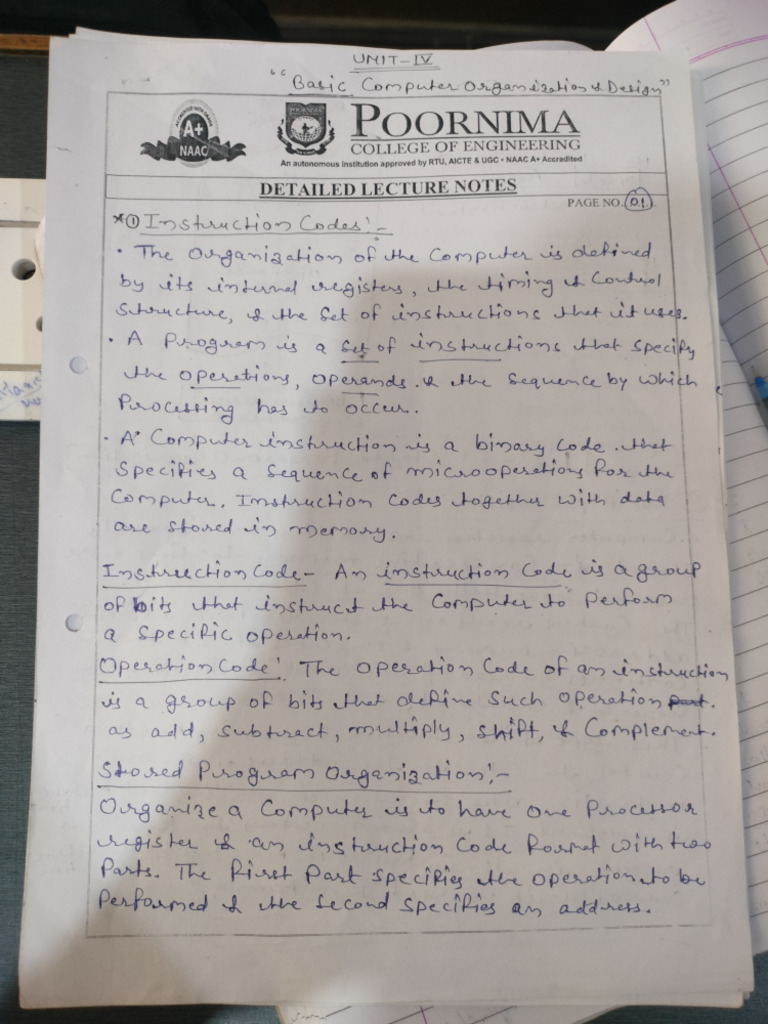 UNIT-IV
"Basic Computer Organization & Design"
ACCREDITED WITH GRADE
A+
NAAC
POORNIMA
COLLEGE OF ENGINEERING
An autonomous institution approved by RTU, AICTE & UGC • NAAC A+ Accredited
DETAILED LECTURE NOTES
PAGE NO. 01.
* ① Instruction Codes:-
• The Organization of the Computer is defined
by its internal registers, the timing & Control
Structure, & the Set of instructions that it uses.
• A Program is a Set of instructions that specify
the operations, operands. & the sequence by which
Processing has to occur.
• A Computer instruction is a binary code. that
Specifies a sequence of microoperations for the
Computer. Instruction codes together with data
are stored in memory.
Instruction Code- An instruction Code is a group
of bits that instruct the Computer to Perform
a specific operation.
Operation Code: The operation Code of an instruction
is a group of bits that define such operation part.
as add, subtract, multiply, shift, & Complement.
Stored Program Organization:-
Organize a Computer is to have one Processor
register & an instruction Code Format with two
Parts. The First Part specifies the operation to be
Performed & the second specifies an address.